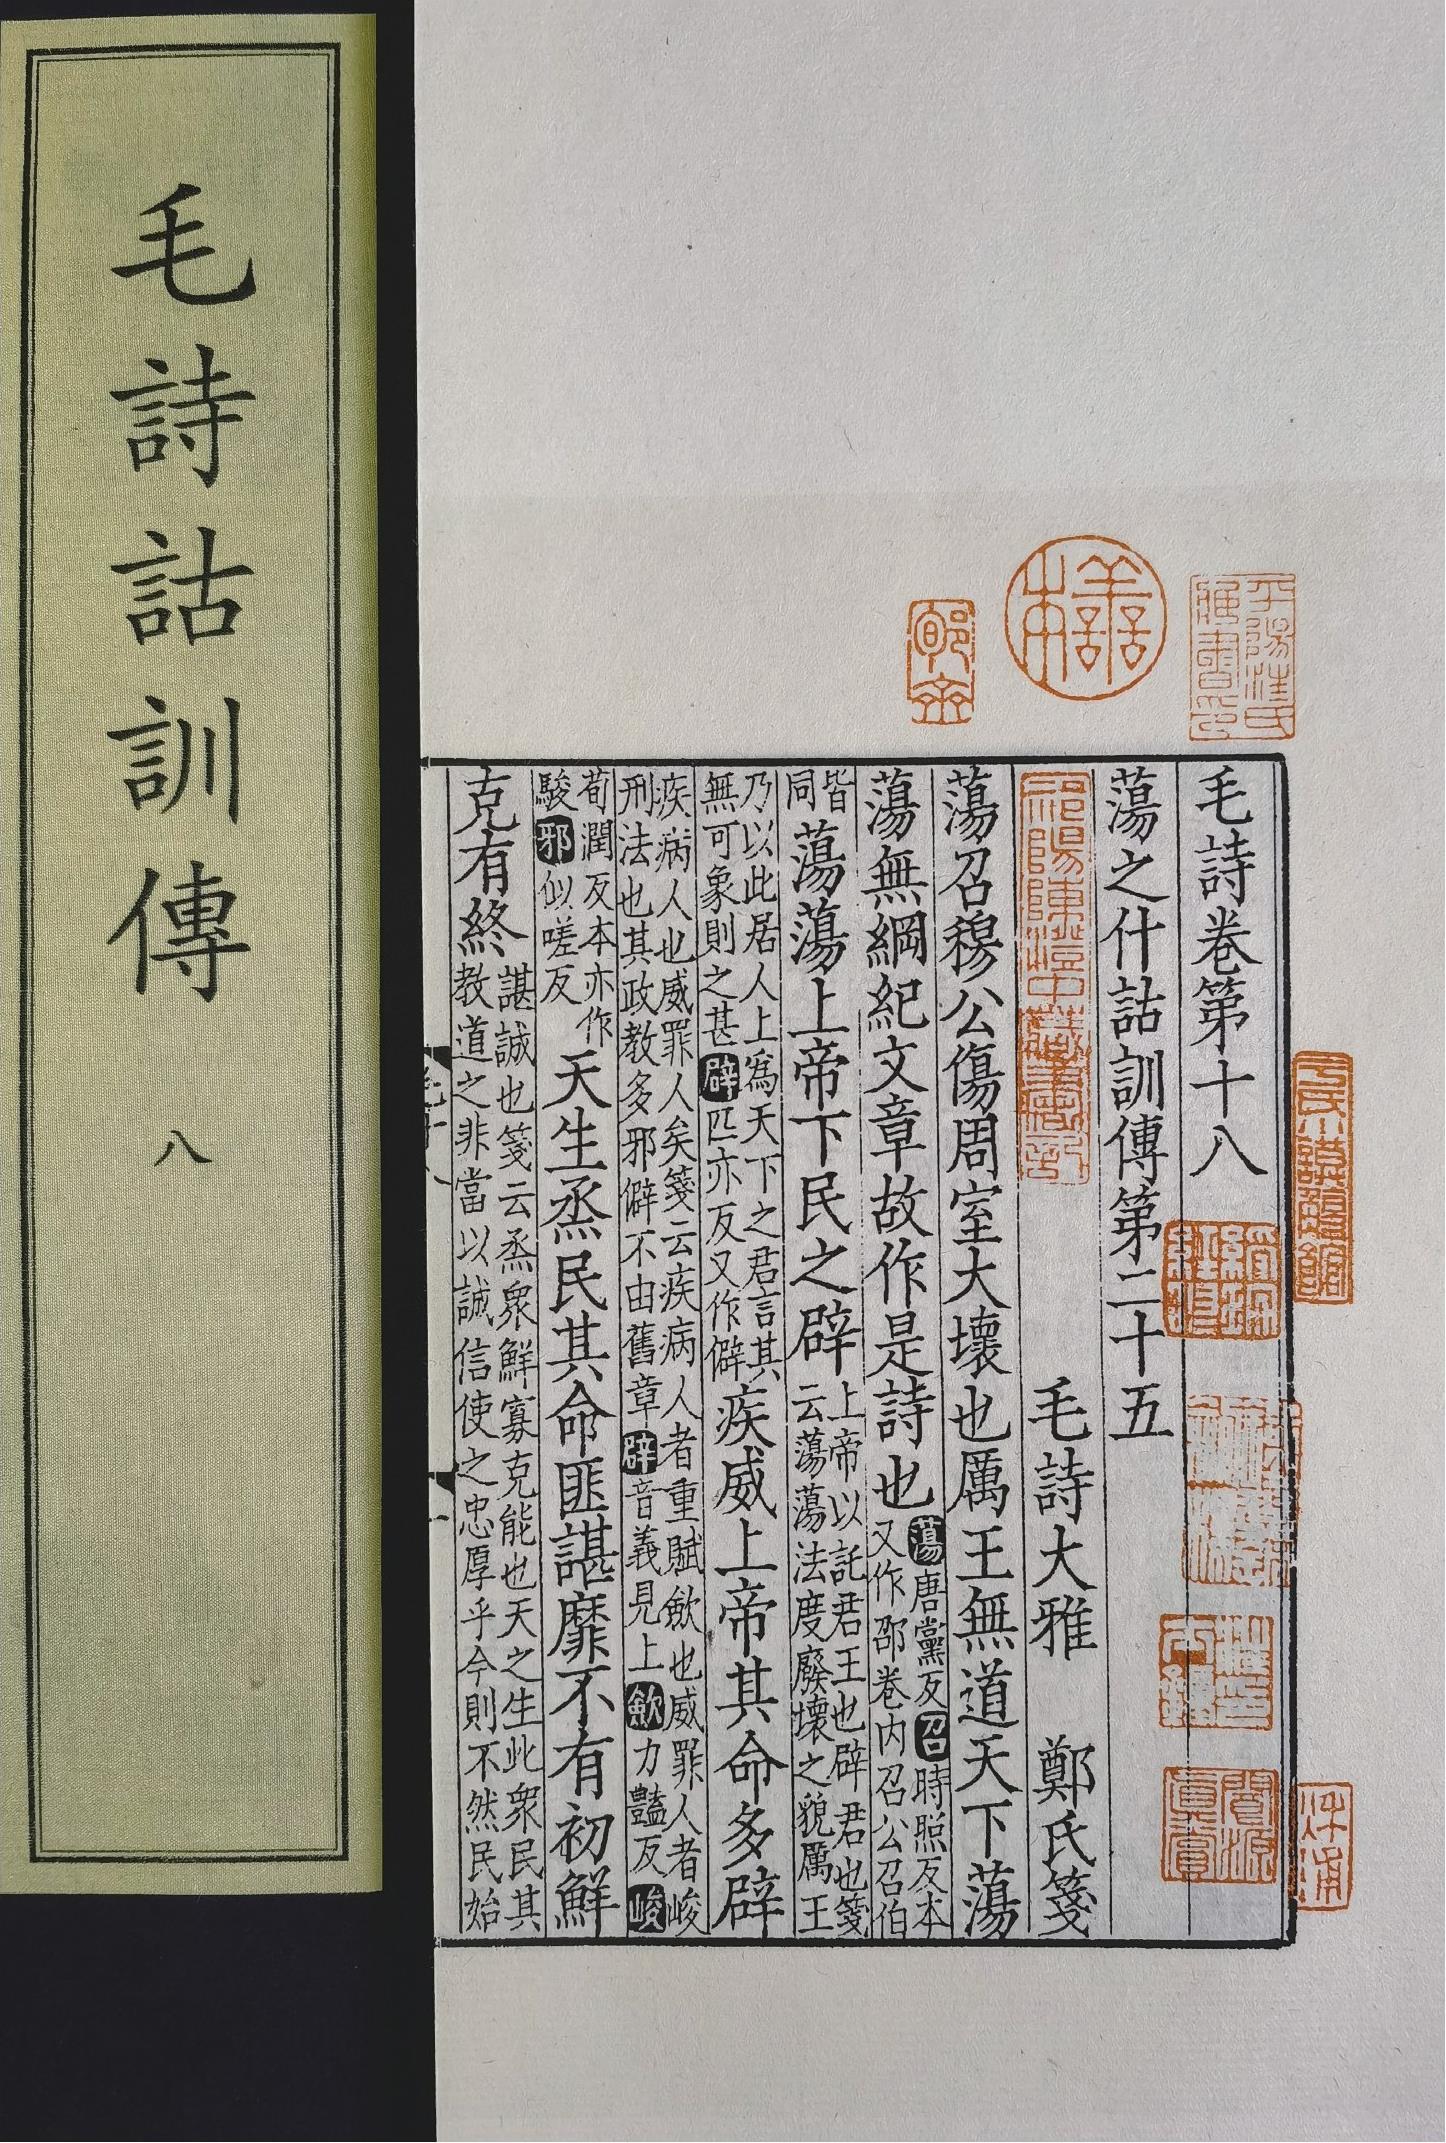 毛詩詁訓傳 八
毛詩卷第十八
蕩之什詁訓傳第二十五
毛詩大雅 鄭氏箋
蕩召穆公傷周室大壞也厲王無道天下蕩
蕩無綱紀文章故作是詩也
蕩唐黨反召時照反本
又作邵卷内召公召伯
皆
同
蕩蕩上帝下民之辟
上帝以託君王也辟君也箋
云蕩蕩法度廢壞之貌厲王
乃以此居人上爲天下之君言其
無可象則之甚辟匹亦反又作僻
疾威上帝其命多辟
疾病人也威罪人矣箋云疾病人者重賦歛也威罪人者峻
刑法也其政教多邪僻不由舊章辟音義見上歛力豔反峻
荀潤反本亦作
駿邪似嗟反
天生烝民其命匪諶靡不有初鮮
克有終
諶誠也箋云烝衆鮮寡克能也天之生此衆民其
教道之非當以誠信使之忠厚乎今則不然民始
善本